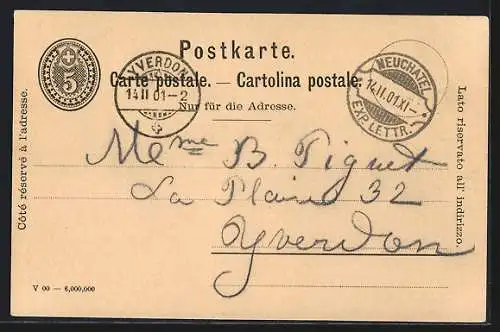 Postkarte.
Carte postale. — Cartolina postale.
Nur für die Adresse.
5
YVERDON
14 II 01 - 2
NEUCHATEL
14. II. 01. XI -
EXP. LETTR.
Côté réservé à l'adresse.
Lato riservato all' indirizzo.
Mme B. Piguet
La Plaine 32
Yverdon
V 00 — 6,000,000